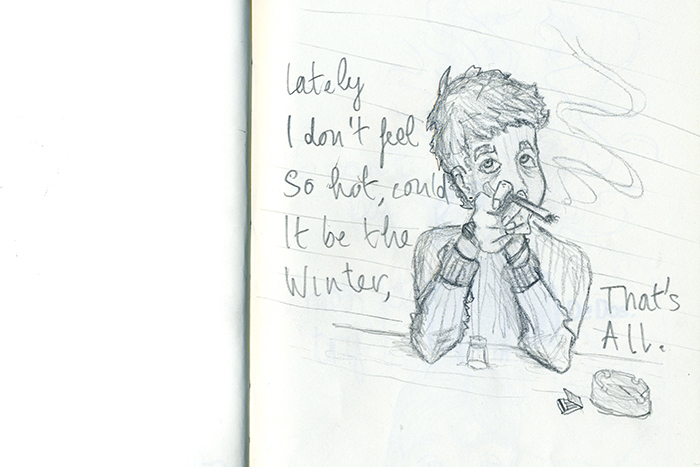 Lately
I don't feel
So hot, could
It be the
Winter,
That's
All.